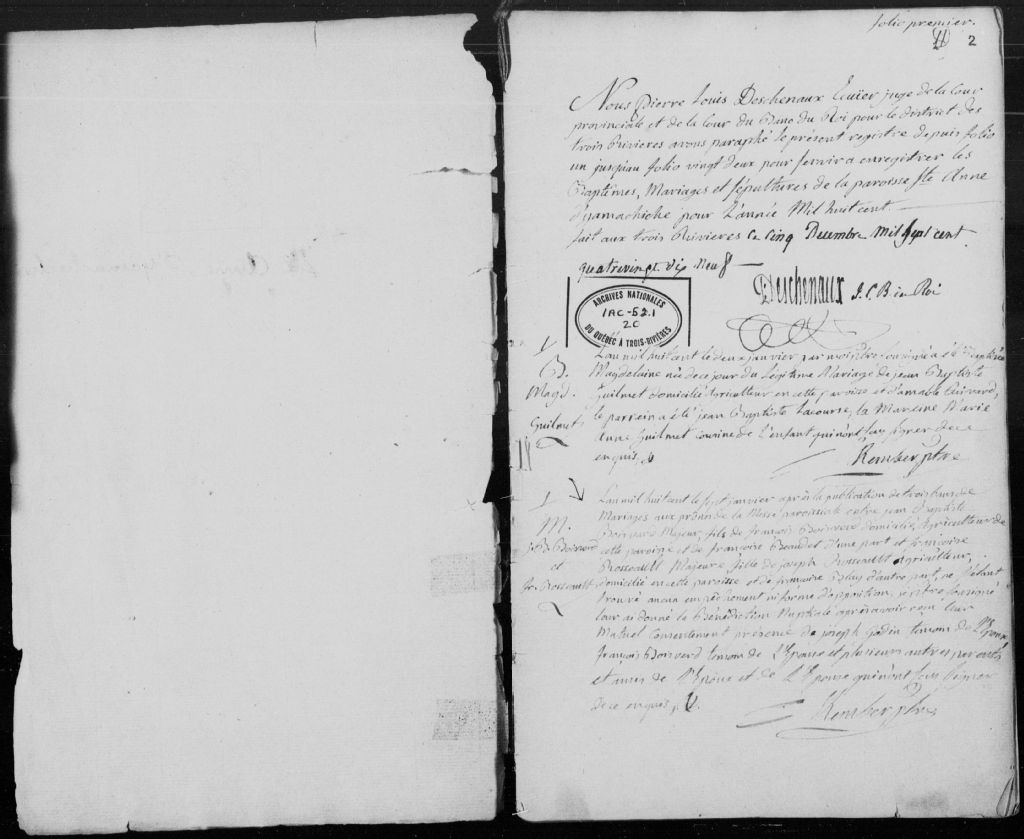 folio premier.
2
Nous Pierre Louis Deschenaux Ecuïer juge de la Cour
provinciale et de la Cour du Banc du Roi pour le district des
trois Rivieres avons paraphé le présent registre depuis folio
un jusqu'au folio vingt deux pour servir a enregitrer les
Baptêmes, Mariages et sépultures de la paroisse Ste Anne
d'yamachiche pour l'année Mil huit cent.
fait aux trois Rivieres Ce Cinq Decembre Mil Sept cent
quatrevingt dix Neuf
Deschenaux J.C.B. du Roi
ARCHIVES NATIONALES
1AC-S2.1
20
DU QUÉBEC À TROIS-RIVIÈRES
B.
Magd.
Guilmet
L'an mil huit cent le deux janvier par moi ptre soussigné a été Baptisée
Magdelaine née de ce jour du Légitime Mariage de jean Baptiste
Guilmet domicilié Agriculteur en cette paroisse et d'amable
le parrein a été jean Baptiste Lacourse, la Mareine Marie
Anne Guilmet cousine de l'enfant qui n'ont sçu signer de ce
enquis
Rember ptre
M.
J. B. Boisverd
et
fr. Rosseault
L'an mil huit cent le sept janvier après la publication de trois bans de
Mariages aux prônes de la Messe paroissiale entre jean Baptiste
Boisverd Majeur, fils de françois Boisverd domicilié, Agriculteur de
cette paroisse et de françoise Beaudet d'une part et françoise
Rosseault Majeure, fille de joseph Rosseault Agriculteur,
domicilié en cette paroisse et de françoise Blay d'autre part, ne s'étant
trouvé aucun empêchement ni forme d'opposition, je ptre soussigné
leur ai donné la Bénédiction Nuptiale après avoir reçu leur
Mutuel Consentement présence de joseph Godin temoin de l'Epoux
françois Boisverd temoin de l'Epouse et plusieurs autres parents
et amis de l'Epoux et de l'Epouse qui n'ont sçu signer
de ce enquis
Rember ptre